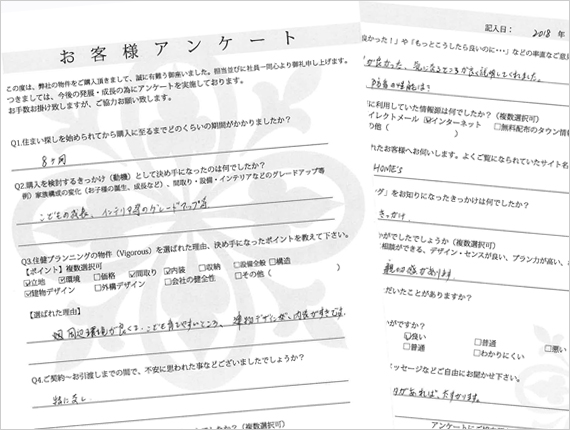 お客様アンケート
この度は、弊社の物件をご購入頂きまして、誠に有難う御座いました。担当並びに社員一同心より御礼申し上げます。
つきましては、今後の発展・成長の為にアンケートを実施しております。
お手数お掛け致しますが、ご協力お願い致します。
Q1.住まい探しを始められてから購入に至るまでどのくらいの期間がかかりましたか?
8ヶ月
Q2.購入を検討するきっかけ(動機)として決め手になったのは何でしたか?
例)家族構成の変化(お子様の誕生、成長など)、間取り・設備・インテリアなどのグレードアップ等
こどもの成長、インテリア等のグレードアップ等
Q3.住健プランニングの物件(Vigorous)を選ばれた理由、決め手になったポイントを教えて下さい。
【ポイント】複数選択可
☑立地 ☑環境 □価格 ☑間取り ☑内装 □収納 □設備全般 □構造
☑建物デザイン □外構デザイン □会社の健全性 □その他( )
【選ばれた理由】
周辺環境が良く、こども育てやすいところ、建物デザインが、内装がすてき
Q4.ご契約〜お引渡しまでの間で、不安に思われた事などございましたでしょうか?
特になし
でしたか?(複数選択可)
記入日: 2018 年
良かった!」や「もっとこうしたら良いのに・・・」などの率直なご意見
が良かった。気になるところがよく説明してくれました。
に利用していた情報源は何でしたか?(複数選択可)
イレクトメール ☑インターネット □無料配布のタウン情報
り他( )
れたお客様へお伺いします。よくご覧になられていたサイト名
HOME's
グ」をお知りになったきっかけは何ですか?
きっかけ.
かがでしたでしょうか(複数選択可)
相談ができる、デザイン・センスが良い、プラン力が高い、
親切感があります
だいたことがありますか?
がですか?
☑良い □普通 □悪い
□普通 □わかりにくい
メッセージなどご自由にお聞かせ下さい。
があれば、たすかります。
アンケートにご協